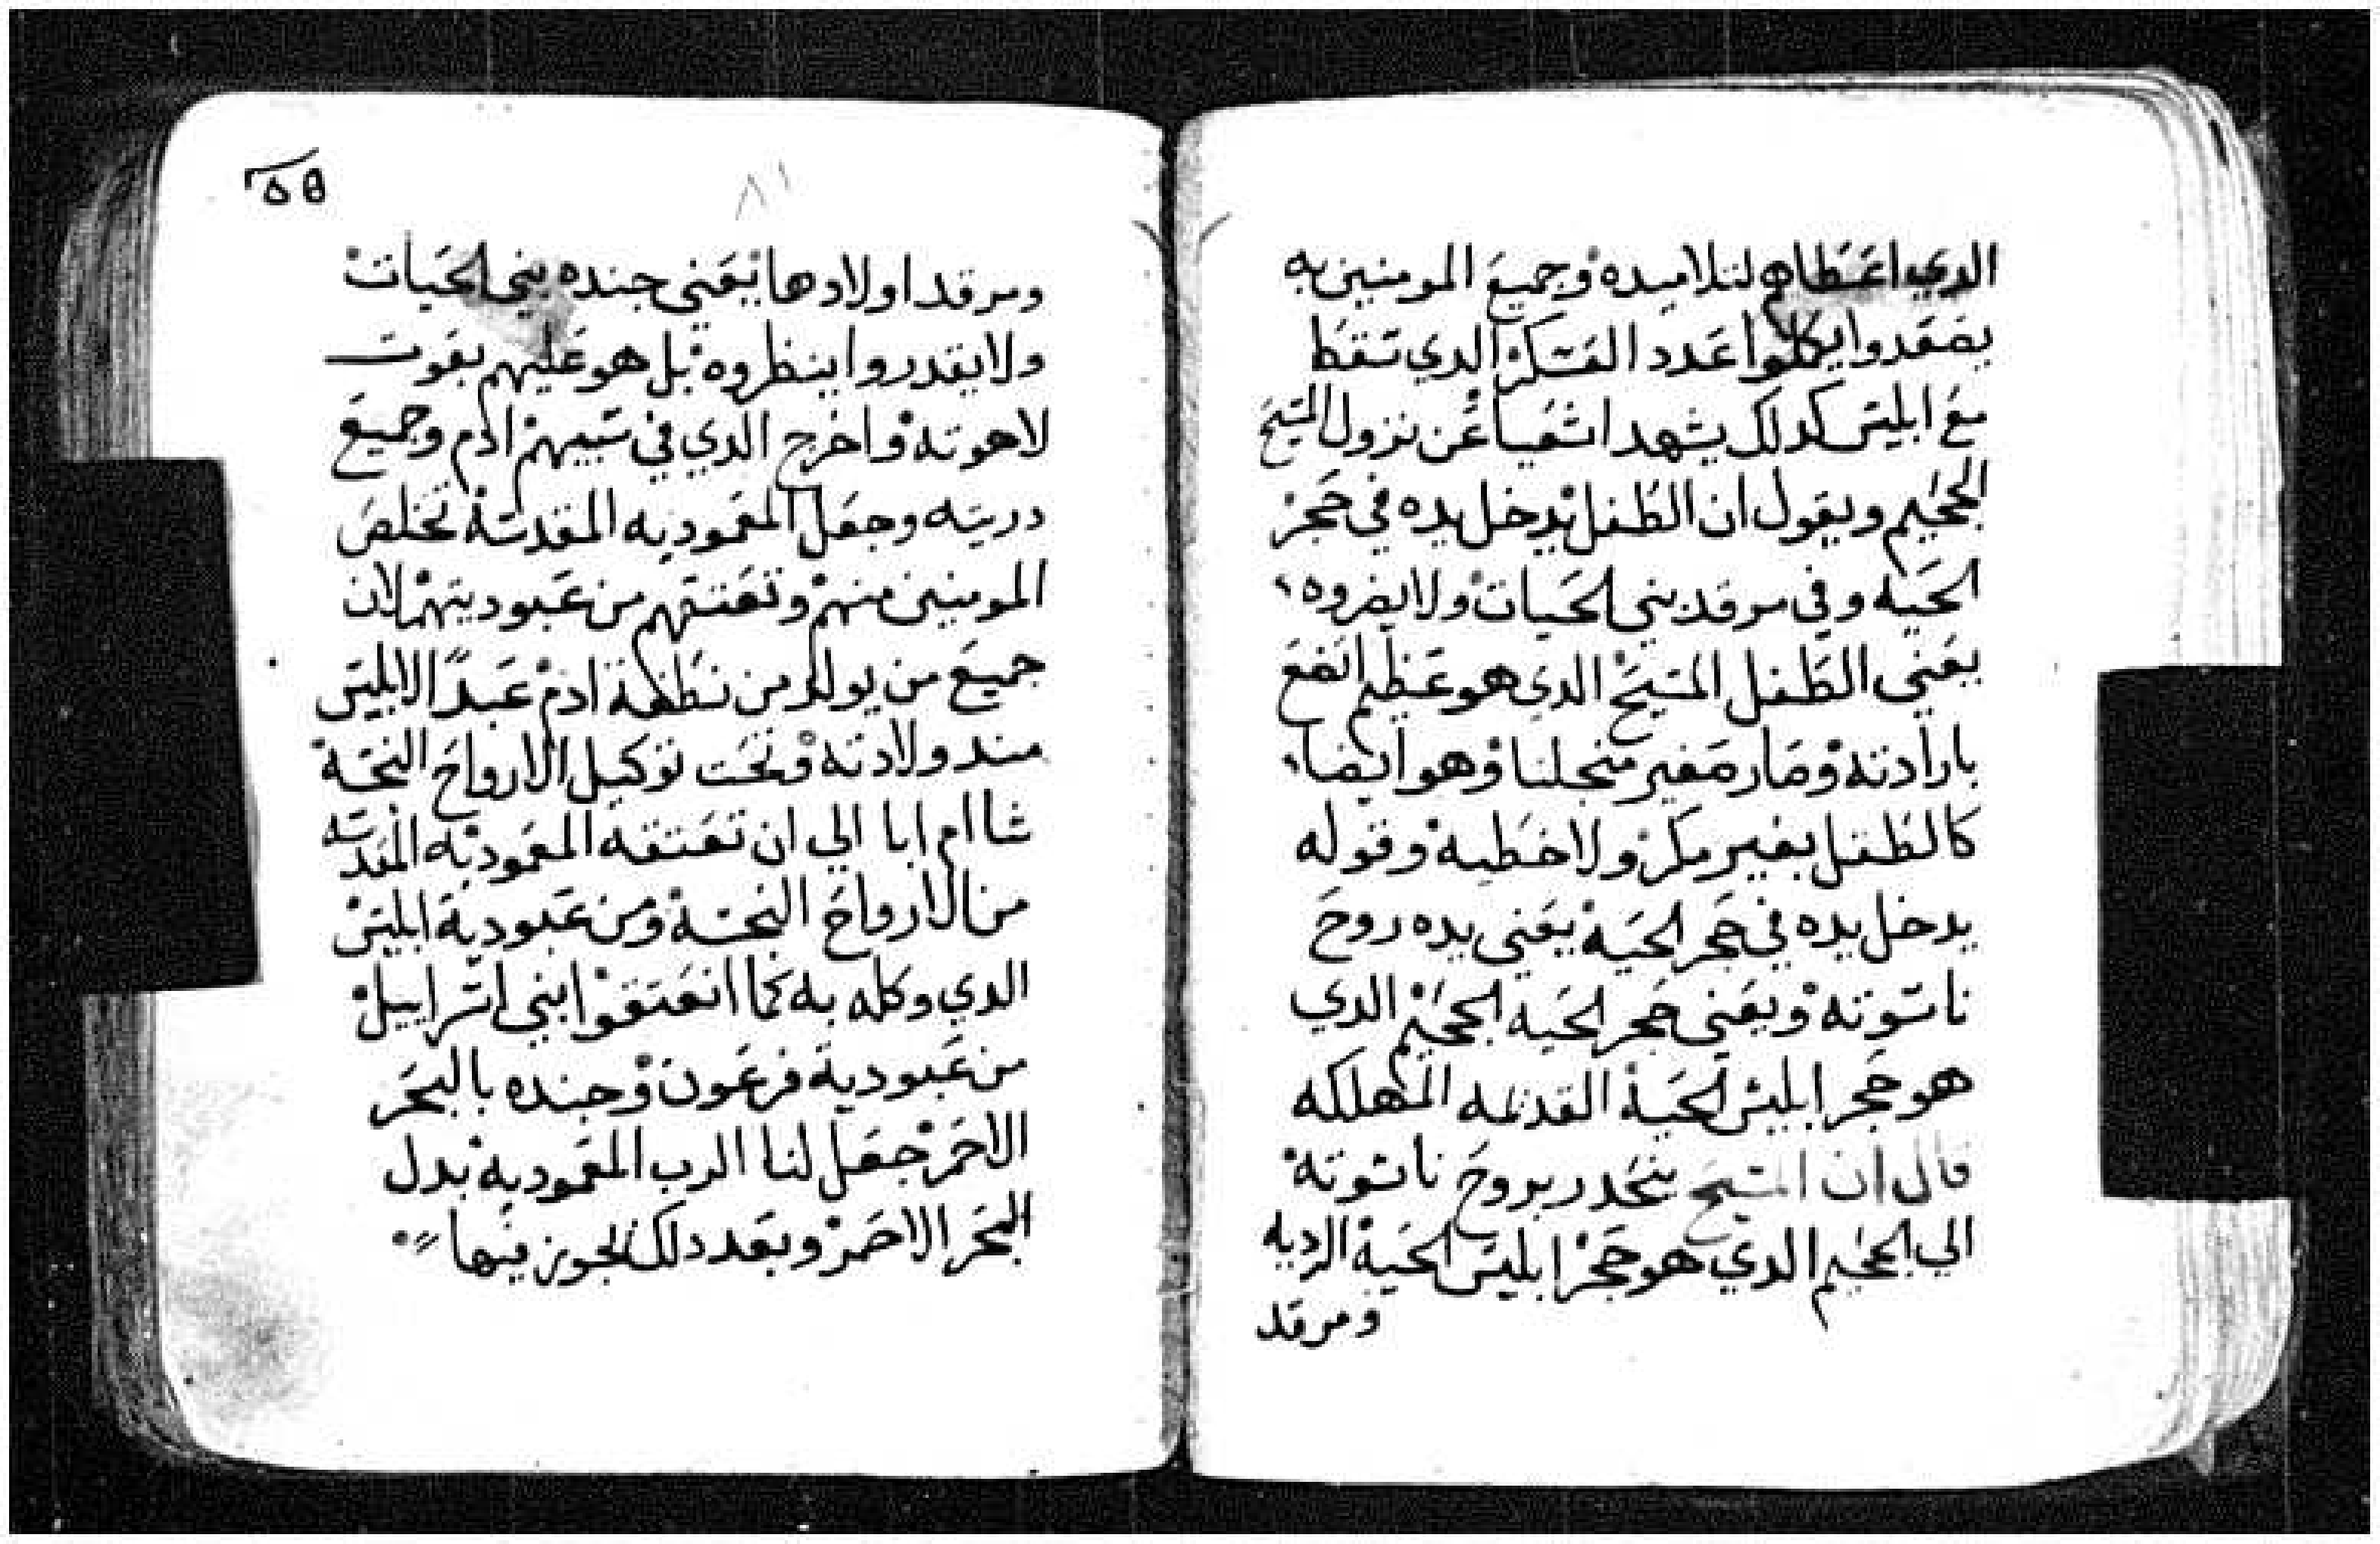 الدي اعطاهم لتلاميده وجميع المومنين به
يصعدوا ايكملوا عدد العسكر الدي سقط
مع ابليس كدلك يشهد اشعيا عن نزول المسيح
الجحيم ويقول ان الطفل يدخل يده في حجر
الحيه وفي مرقد بني الحيات ولا يضروه
يعني الطفل المسيح الدي هو عظيم اتضع
بارادته وصار صغير منجلنا وهو ايضا
كالطفل بغير مكر ولا خطيه وقوله
يدخل يده في حجر الحيه يعني يده روح
ناسوته ويعني حجر الحيه الجحيم الدي
هو حجر ابليس الحية القديمه المهلكه
قال ان المسيح ينحدر بروح ناسوته
الي الجحيم الدي هو حجر ابليس الحية الرديه
ومرقد
٨١
ومرقد اولادها يعني جنده بني الحيات
ولا يقدروا ينظروه بل هو عليهم بقوت
لاهوته واخرج الدي في سبيهم ادم وجميع
دريته وجعل المعموديه المقدسة تخلص
المومنين منهم وتعتقهم من عبوديتهم لان
جميع من يولد من نطفة ادم عبدًا لابليس
مند ولادته وتحت توكيل الارواح النجسة
شا ام ابا الي ان تعتقه المعموديه المقدسه
من الارواح النجسة ومن عبودية ابليس
الدي وكله به كما انعتقوا بني اسراييل
من عبودية فرعون وجنده بالبحر
الاحمر جعل لنا الرب المعموديه بدل
البحر الاحمر وبعد دلك نجوز فيها